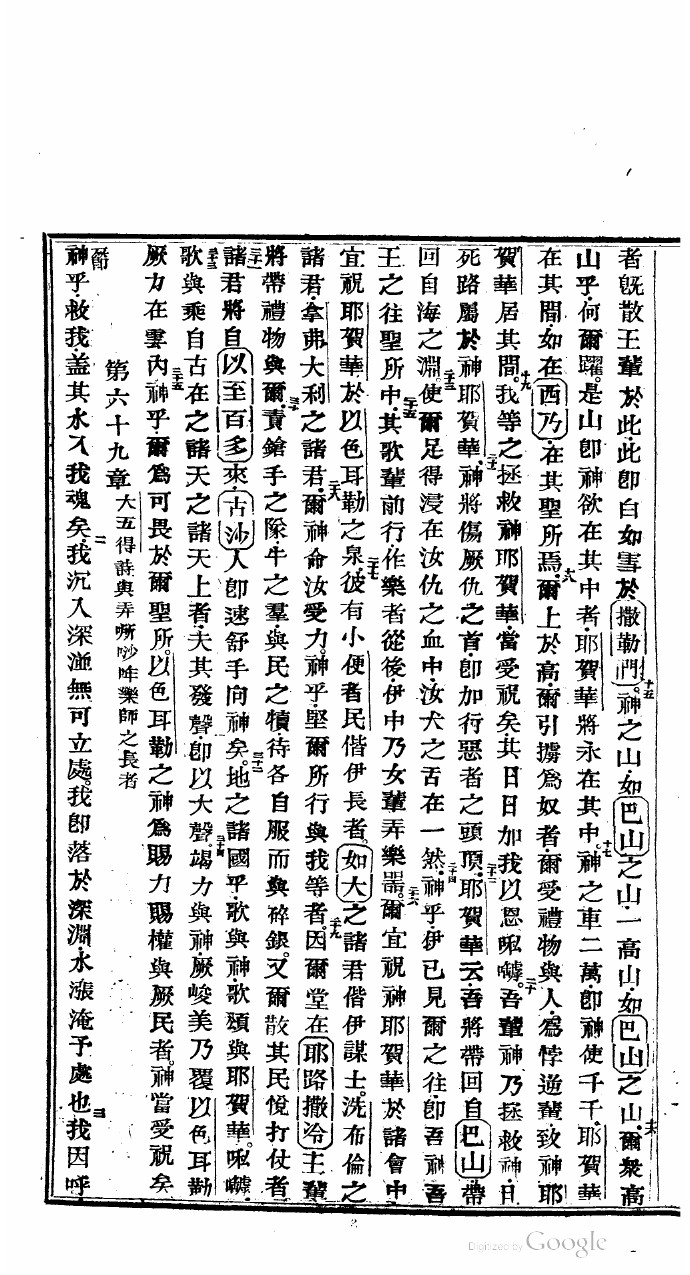 者旣散王輩於此此卽白如雪於撒勒門○十五神之山如巴山之山一高山如巴山之山○十六爾衆高
山乎何爾躍○是山卽神欲在其中者耶賀華將永在其中○十七神之車二萬卽神使千千耶賀華
在其間如在西乃在其聖所焉○十八爾上於高爾引擄為奴者爾受禮物與人為悖逆輩致神耶
賀華居其間○十九我等之拯救神耶賀華當受祝矣其日日加我以恩㖿㘔○二十吾輩神乃拯救神日
死路屬於神耶賀華○二十一神將傷厥仇之首卽加行惡者之頭頂○二十二耶賀華云吾將帶回自巴山帶
回自海之淵○二十三使爾足得浸在汝仇之血中汝犬之舌在一然○二十四神乎伊已見爾之往卽吾神吾
王之往聖所中○二十五其歌輩前行作樂者從後伊中乃女輩弄樂噐○二十六爾宜祝神耶賀華於諸會中
宜祝耶賀華於以色耳勒之泉○二十七彼有小便者民偕伊長者○如大之諸君偕伊謀士洗布倫之
諸君拿弗大利之諸君○二十八爾神命汝受力神乎堅爾所行與我等者○二十九因爾堂在耶路撒冷王輩
將帶禮物與爾○三十責鎗手之隊牛之羣與民之犢待各自服而與碎銀○又爾散其民悅打仗者
三十一諸君將自以至百多來古沙人卽速舒手向神矣○三十二地之諸國乎歌與神歌頌與耶賀華○㖿㘔
三十三歌與乘自古在之諸天之諸天上者夫其發聲卽以大聲○三十四竭力與神厥峻美乃覆以色耳勒
厥力在雲內○三十五神乎爾為可畏於爾聖所○以色耳勒之神為賜力賜權與厥民者○神當受祝矣
第六十九章 大五得詩與弄㖇吵哖樂師之長者
一節神乎救我蓋其水入我魂矣○二我沉入深泚無可立處○我卽落於深淵水漲淹予處也○三我因呼
Digitized by Google